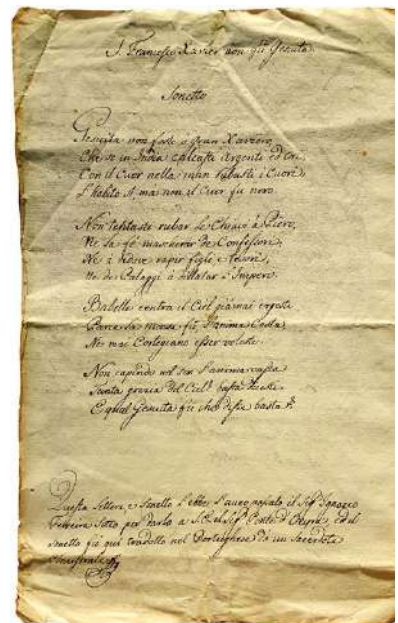 S. Francesco Xavier non già Gesuita
Sonetto
Gesuita non foste ò Gran Xaviero,
Che se in India calcaste Argenti ed Ori,
Con il Cuor nella man rubaste i Cuori
L'habito sì mà non il Cuor fu nero.
Non tentaste rubar le Chiavi à Piero,
Ne la fè mascherar de Confessori,
Ne à vedove rapir figli e tesori,
Ne de Palaggi à dilatar l'Impero.
Babelle contra il Ciel giamai ergeste
Parca la mensa fù, l'anima Casta,
Ne mai Cortegiano esser voleste.
Non capindo nel sen l'anima vasta
Tanta grazia del Ciel basta diceste
E qual Gesuita fù che disse basta?
Questa lettera, e Sonetto l'ebbe l'anno passato il Sigr. Ignazio
Ferreira Sotto per darlo a S. E. il Sigr. Conte d'Oeyras, ed il
Sonetto fù qui tradotto nel Portughese da un Sacerdote